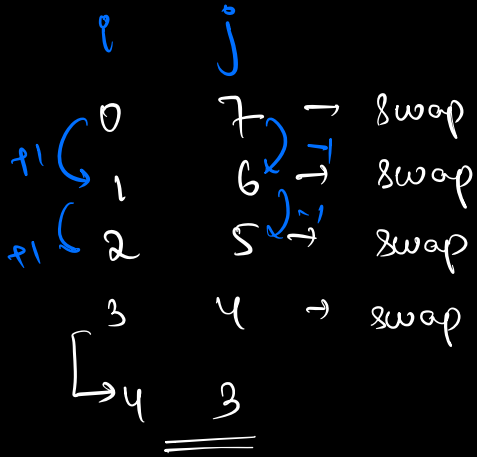 i j
0 7 → swap
+1 -1
1 6 → swap
+1 -1
2 5 → swap
3 4 → swap
4 3